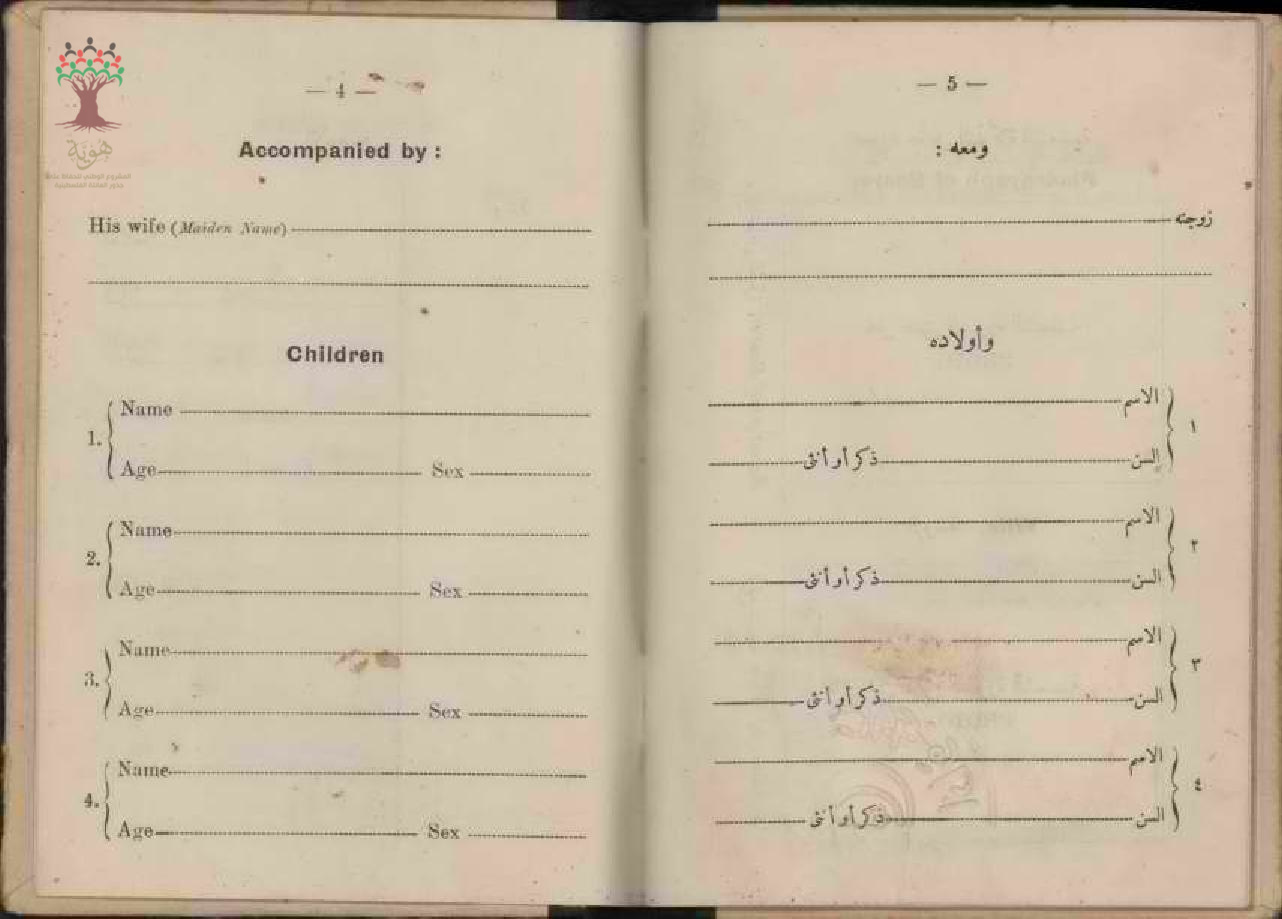 هوية
— 4 —
Accompanied by :
His wife (Maiden Name)
Children
1.
Name
Age Sex
2.
Name
Age Sex
3.
Name
Age Sex
4.
Name
Age Sex
— 5 —
ومعه :
زوجته
وأولاده
١
الاسم
السن ذكر أو أنثى
٢
الاسم
السن ذكر أو أنثى
٣
الاسم
السن ذكر أو أنثى
٤
الاسم
السن ذكر أو أنثى